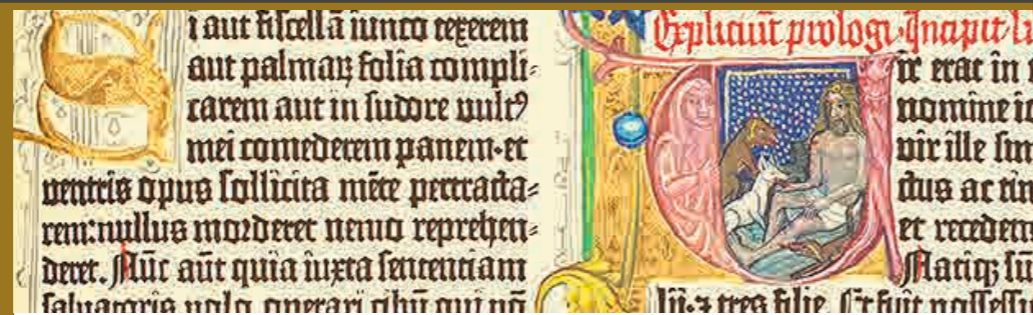 Si aut fiscellā iunco texerem
aut palmaꝝ folia compli-
carem aut in sudore vult9
mei comederem panem·et
ventris opus sollicita mēte pertracta-
rem:nullus morderet nemo reprehen-
deret. Nūc aūt quia iuxta sententiam
salvatoris volo operari cibū qui nō
Expliciūt prologi. Incipit
Vir erat in
nomine
vir ille
ctus ac
et
Natiqꝫ
lii·⁊ tres filie. Et fuit